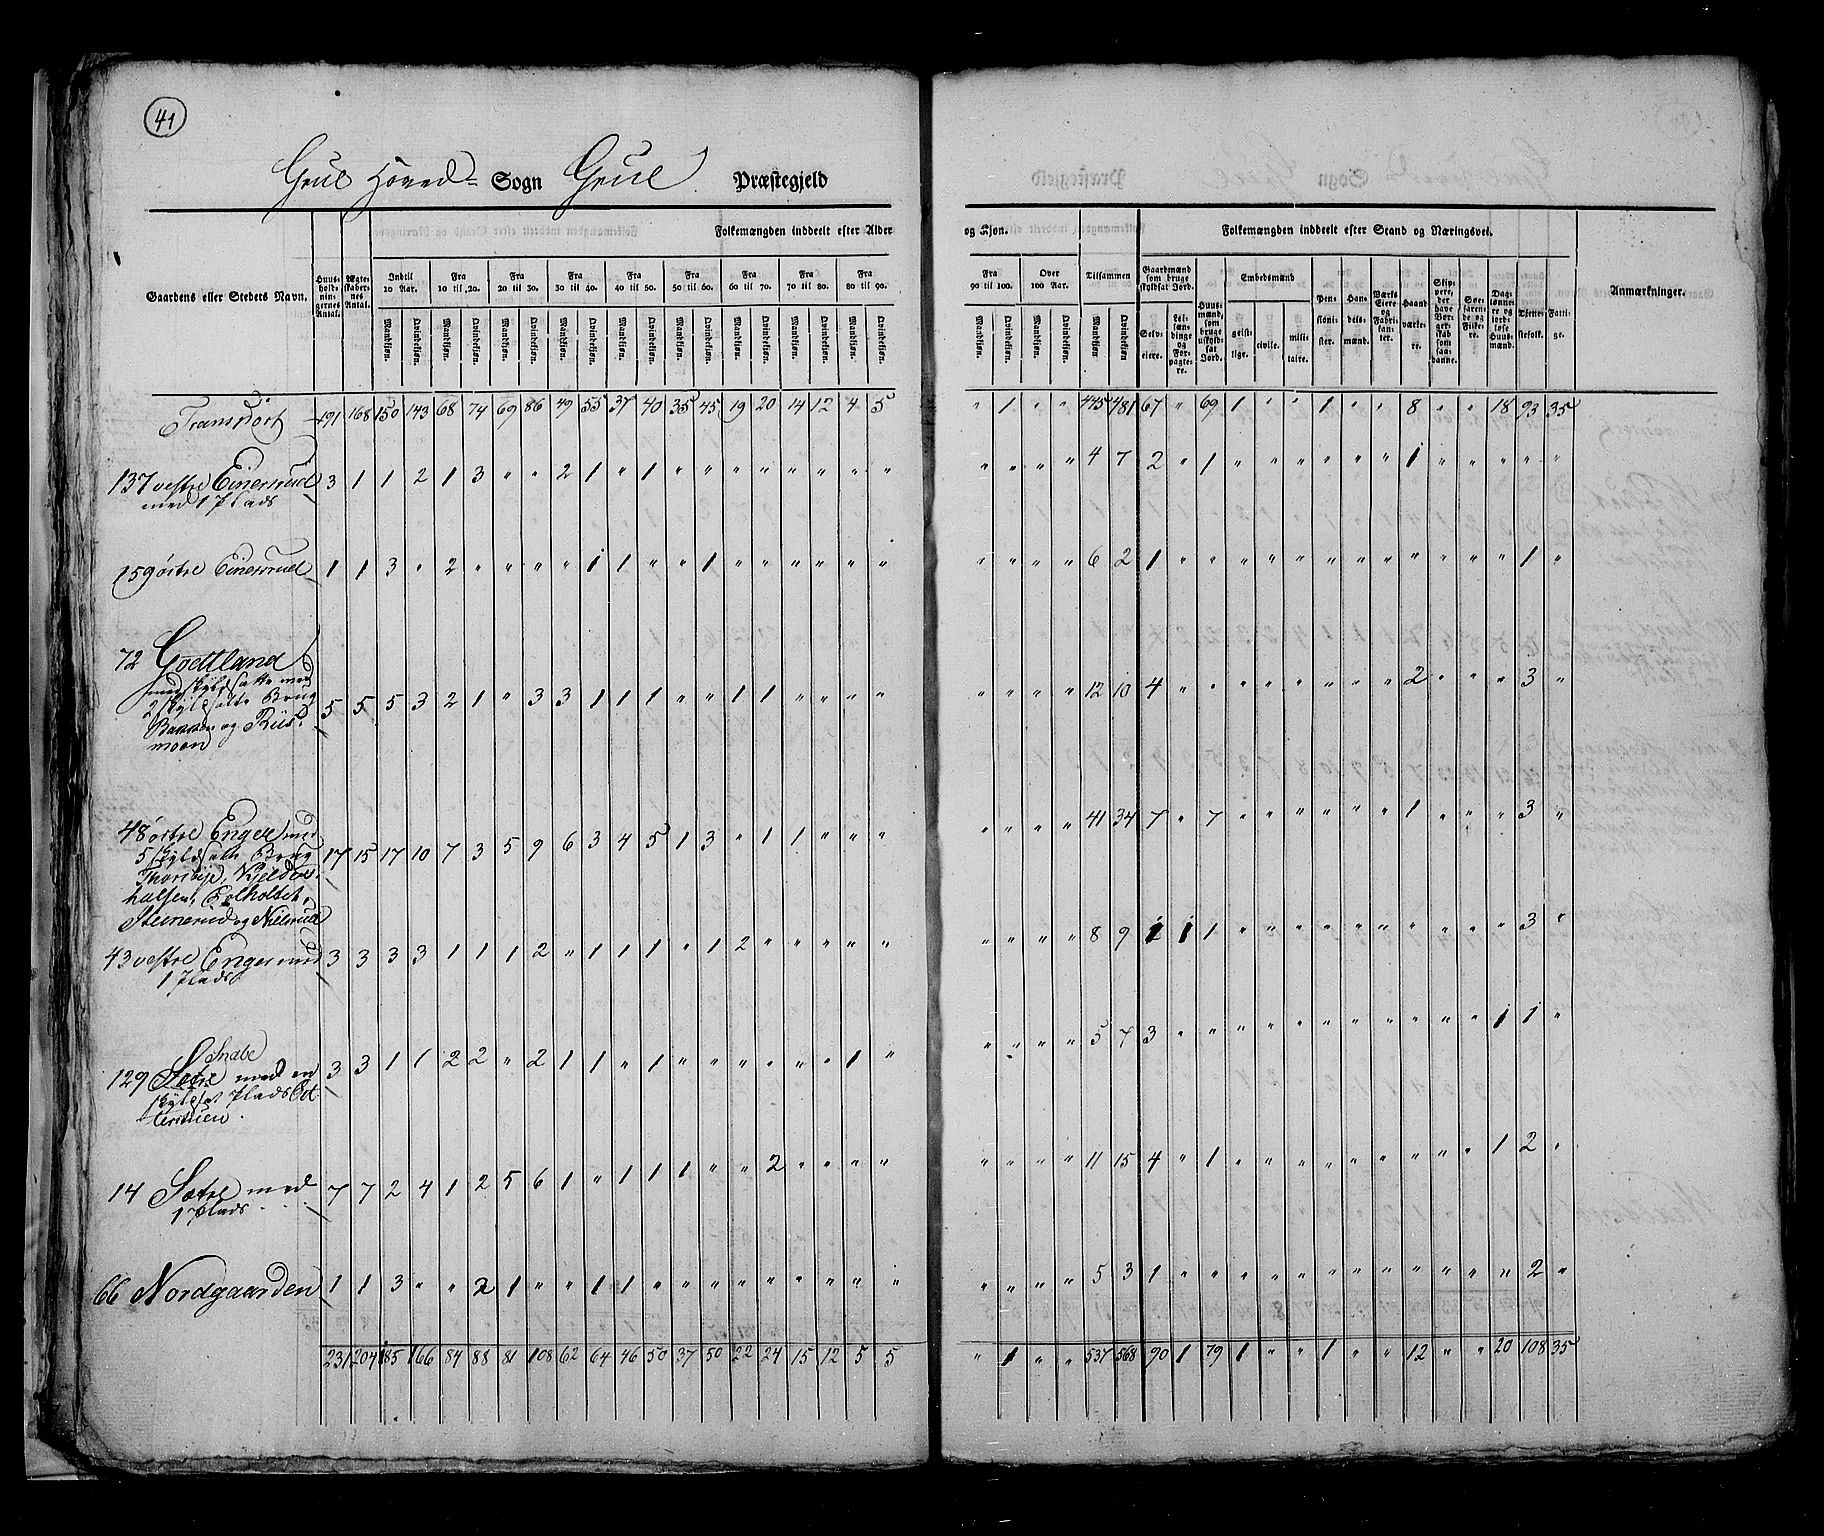 41
Grue Hoved= Sogn Grue Præstegjeld
Gaardens eller Stedets Navn.
Huus-holdnin-gernes Antal.
Ægte-skaber-nes Antal.
Folkemængden inddeelt efter Alder og Kjøn.
Indtil 10 Aar. Fra 10 til 20. Fra 20 til 30. Fra 30 til 40. Fra 40 til 50. Fra 50 til 60. Fra 60 til 70. Fra 70 til 80. Fra 80 til 90. Fra 90 til 100. Over 100 Aar. Tilsammen
Mandkjøn. Qvindekjøn. Mandkjøn. Qvindekjøn. Mandkjøn. Qvindekjøn. Mandkjøn. Qvindekjøn. Mandkjøn. Qvindekjøn. Mandkjøn. Qvindekjøn. Mandkjøn. Qvindekjøn. Mandkjøn. Qvindekjøn. Mandkjøn. Qvindekjøn. Mandkjøn. Qvindekjøn. Mandkjøn. Qvindekjøn. Mandkjøn Qvindekjøn
Folkemængden inddeelt efter Stand og Næringsvei.
Gaardmænd som bruge skyldsat Jord.
Selv-eiere.
Lei-lændinge og For-pagte-re.
Huus-mænd, som bruge uskyld-sat Jord.
Embedsmænd
geist-lige. civile. mili-taire.
Pen-sioni-ster.
Han-dels-mænd.
Værks Eiere og Fabri-kan-ter.
Haand værke-re.
Skip-pere, der have Bor-ger-skab som saa-danne.
Søe-farende og Fiske-re.
Dag-lønne-re og jord-løse Huus-mænd.
Tjene-stefolk.
Fatti-ge.
Anmærkninger.
Transport 191 168 150 143 68 74 69 86 49 55 37 40 35 45 19 20 14 12 4 5 " 1 " " 445 481 67 " 69 1 " " 1 " " 8 " " 18 93 35
137 vestre Einerrud 3 1 1 2 1 3 " " 2 1 " 1 " " " " " " " " " " " " 4 7 2 " 1 " " " " " " 1 " " " " "
med 1 Plads
159 østre Einerrud 1 1 3 " 2 " " " " 1 1 " " 1 " " " " " " " " " " 6 2 1 " " " " " " " " " " " " 1 "
72 Godtland
med
2 skyldsatte Brug
og Riis-
moen 5 5 5 3 2 1 " 3 3 1 1 1 " " 1 1 " " " " " " " " 12 10 4 " " " " " " " " 2 " " " 3 "
48 østre Enger med
5 skyldsatte Brug 17 15 17 10 7 3 5 9 6 3 4 5 1 3 " 1 1 " " " " " " " 41 34 7 " 7 " " " " " " 1 " " " 3 "
Steinerud og Nilsrud
43 vestre Enger med 3 3 3 3 1 1 1 2 " 1 1 1 " 1 2 " " " " " " " " " 8 9 1 1 1 " " " " " " " " " " 3 "
1 Plads
Snabe
129 Sætre med en 3 3 1 1 2 2 " 2 1 1 " 1 " " " " " " 1 " " " " " 5 7 3 " " " " " " " " " " " 1 1 "
skyldsat Plads
14 Sætre med 7 7 2 4 1 2 5 6 1 " 1 1 1 " " 2 " " " " " " " " 11 15 4 " 1 " " " " " " " " " 1 2 "
1 Plads
66 Nordgaarden 1 1 3 " " 2 1 " " 1 1 " " " " " " " " " " " " " 5 3 1 " " " " " " " " " " " " 2 "
231 204 185 166 84 88 81 108 62 64 46 50 37 50 22 24 15 12 5 5 " 1 " " 537 568 90 1 79 1 " " 1 " " 12 " " 20 108 35